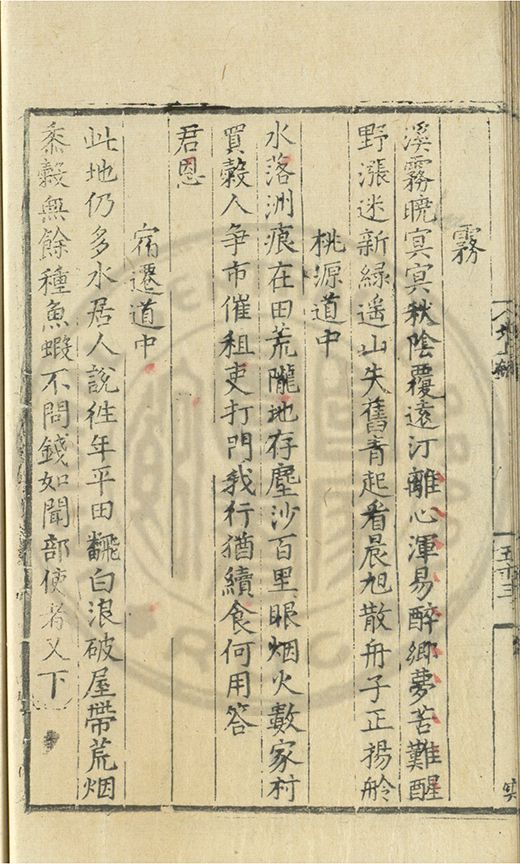 霧
溪霧曉冥冥秋陰覆遠汀離心渾易醉鄉夢苦難醒
野漲迷新綠遥山失舊青起看晨旭散舟子正揚舲
桃源道中
水落洲痕在田荒隴地存塵沙百里眼烟火數家村
買穀人爭市催租吏打門我行猶續食何用答
君恩
宿遷道中
此地仍多水居人說徃年平田飜白浪破屋帶荒烟
黍穀無餘種魚蝦不問錢如聞部使者又下